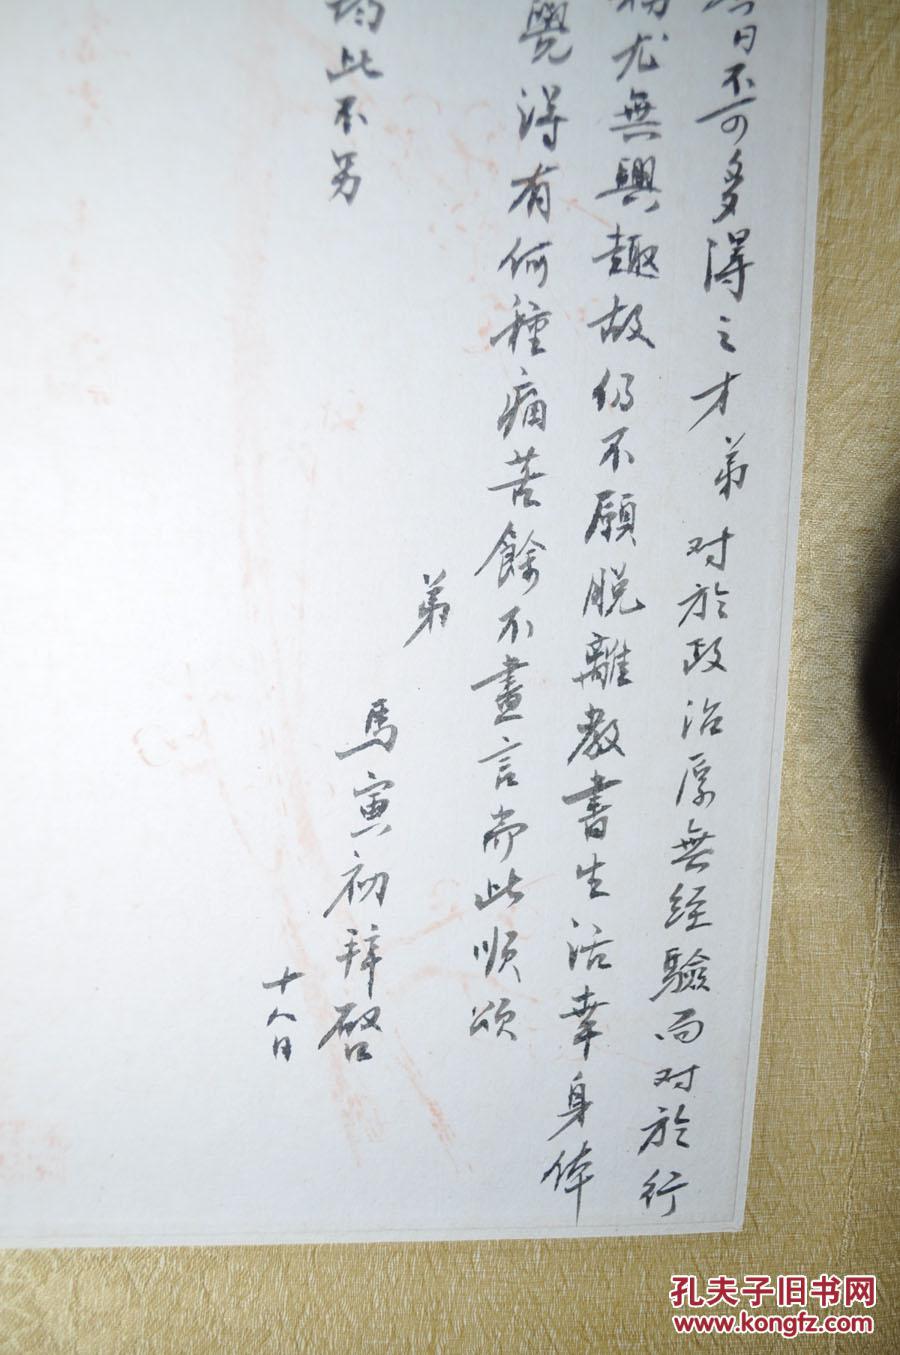 日不可多得之才弟对於政治原無經驗而对於行
尤無興趣故仍不願脱離教書生活幸身体
覺得有何種痛苦餘不盡言耑此順頌
弟
馬寅初拜啓
十八日
此不另
孔夫子旧书网
www.kongfz.com